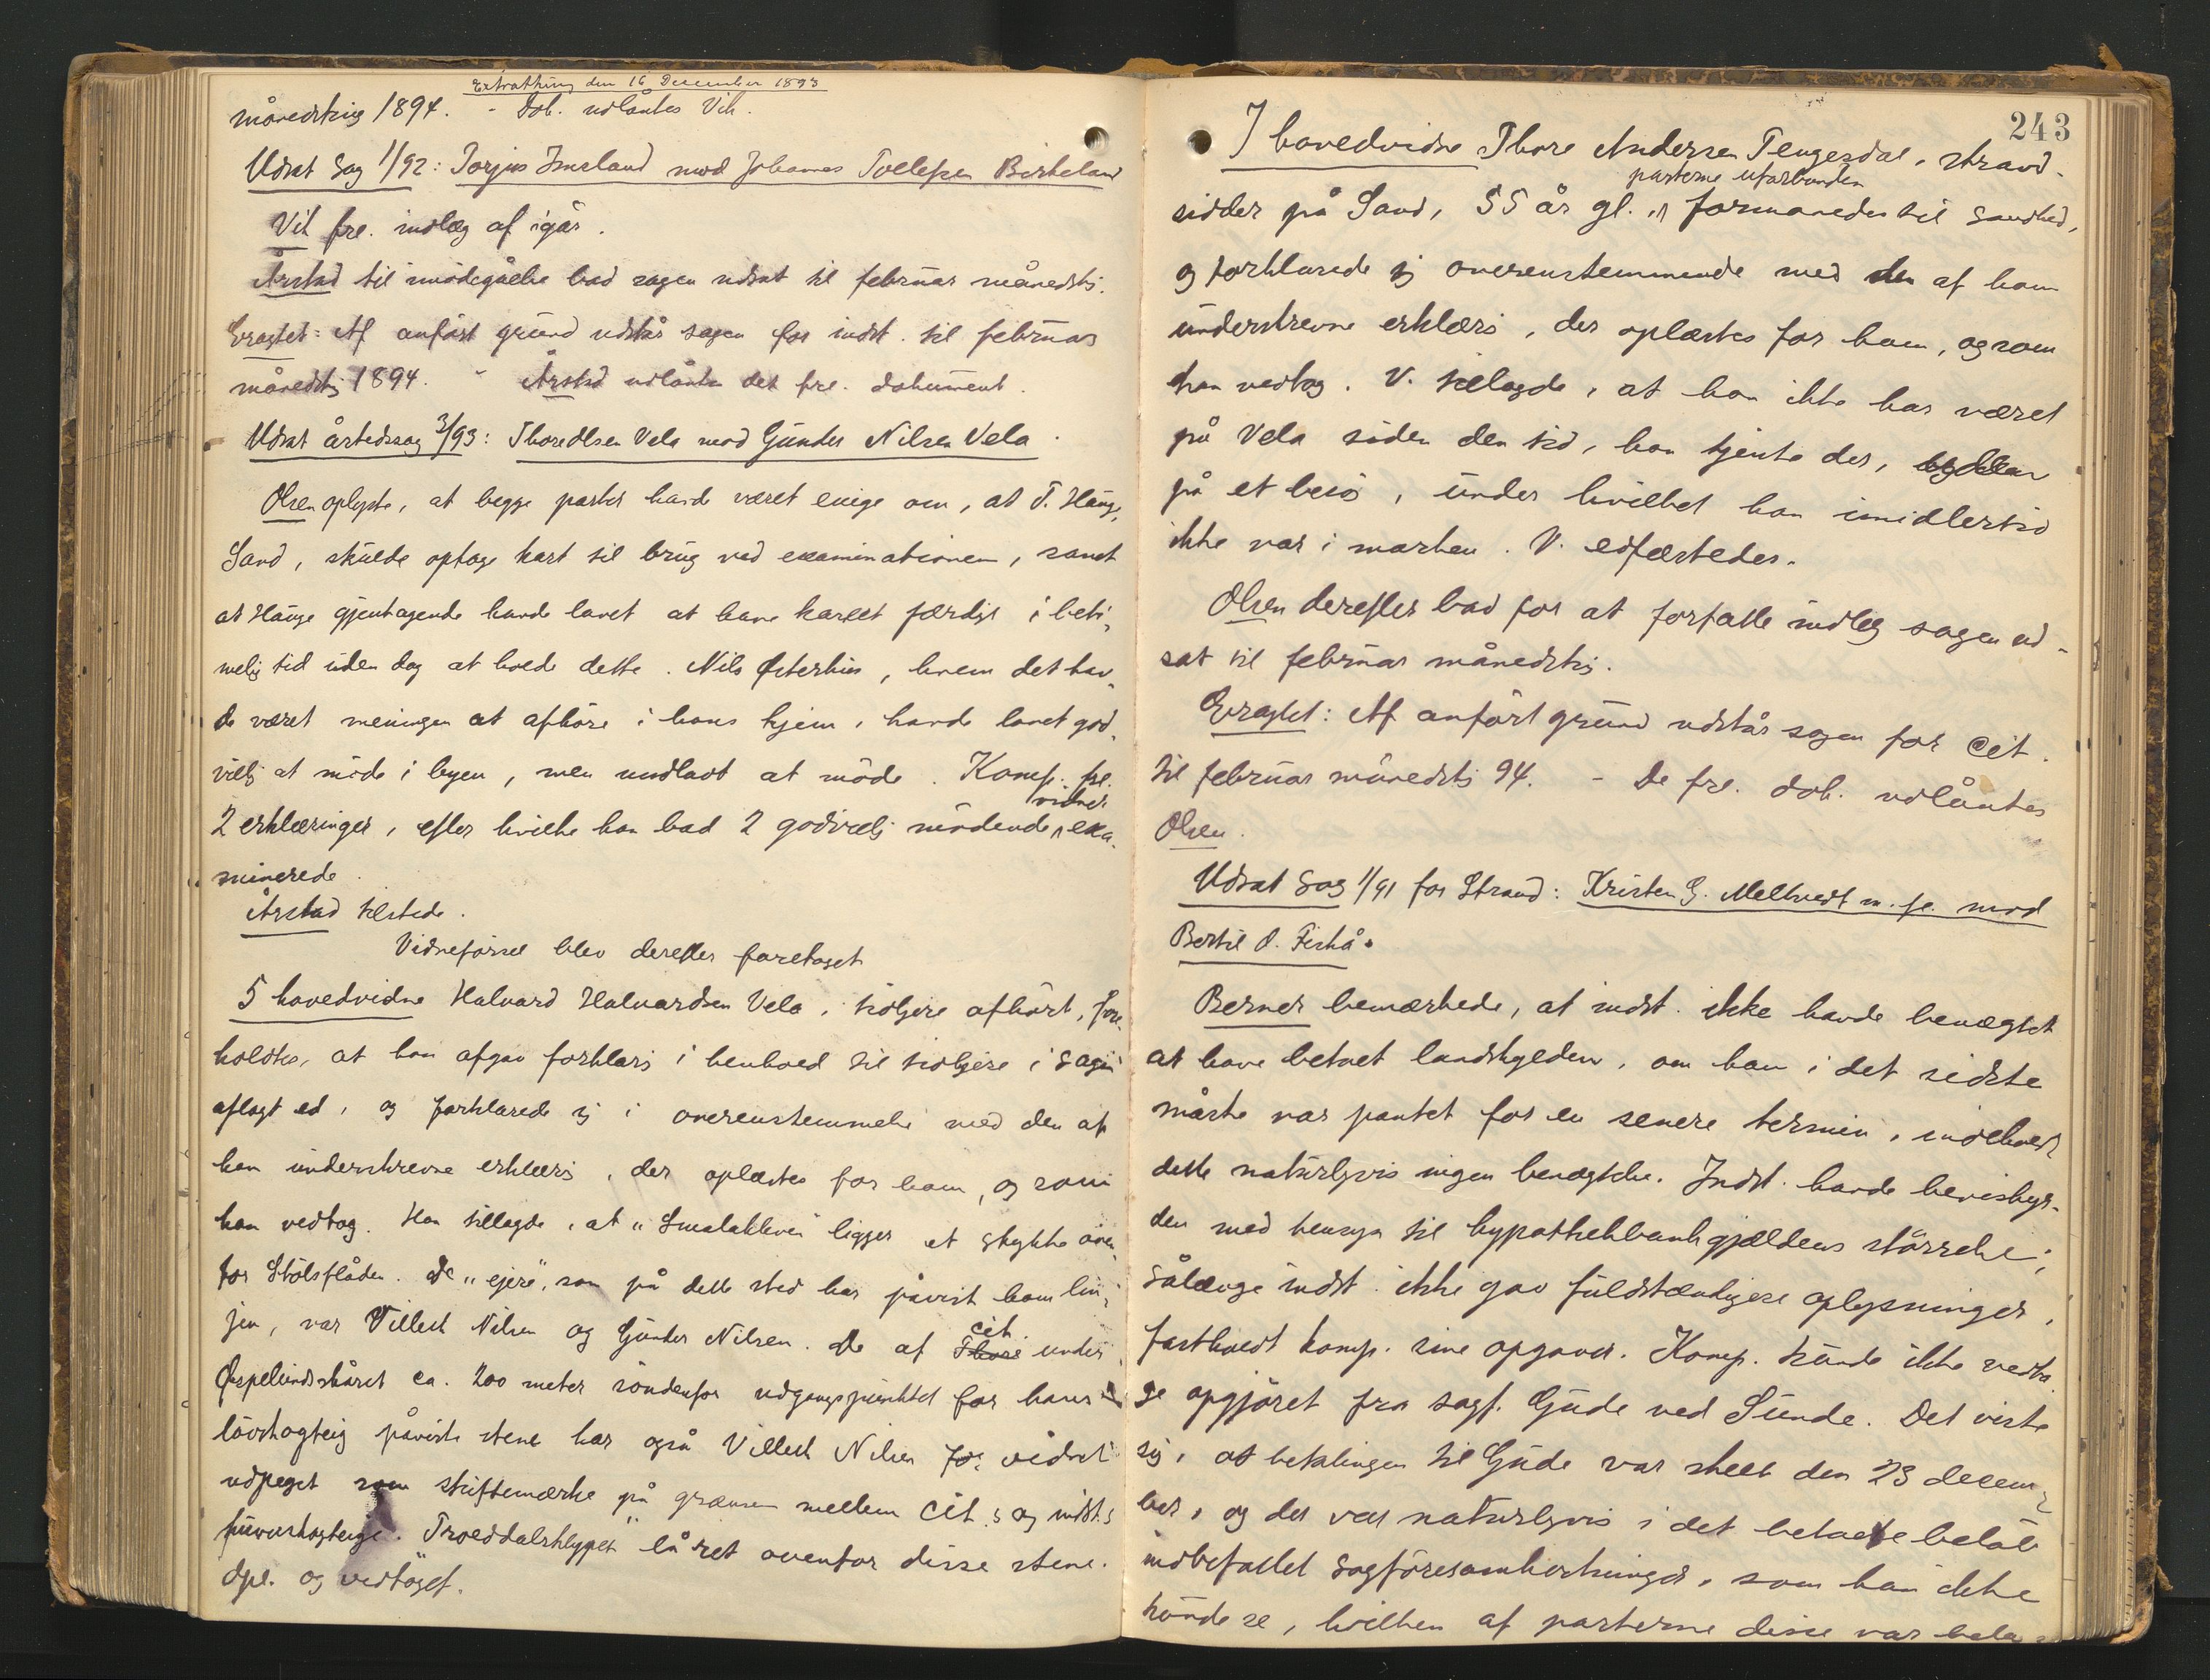 Extrathing den 16 December 1893
månedsting 1894. - Dok. udlåntes Vik.
Udsat Sag 1/92: Torjus Imsland mod Johannes Tollefsen Birkeland
Vik fre. indlæg af igår.
Årstad til imødegåelse bad sagen udsat til februar månedstg.
Eragtet: Af anført grund udstår sagen for indst. til februar
månedstg 1894. - Årstad udlåntes det fre. dokument.
Udsat åstedssag 3/93: Thore Olsen Vela mod Gunder Nilsen Vela.
Olsen oplyste, at begge parter havde været enige om, at T. Hauge,
Sand, skulde optage kart til brug ved examinationen, samt
at Hauge gjentagende havde lovet at have kartet færdigt i beti-
melig tid uden dog at holde dette. Nils Østerhus, hvem det hav-
de været meningen at afhøre i hans hjem, havde lovet god-
villig at møde i byen, men undladt at møde. Komp. fre.
2 erklæringer, efter hvilke han bad 2 godvillig mødende vidner exa-
minerede.
Årstad tilstede.
Vidneførsel blev derefter foretaget
5 hovedvidne Halvard Halvardsen Vela, tidligere afhørt, fore-
holdtes, at han afgav forklarg i henhold til tidligere i sagen
aflagt ed, og forklarede sig i overensstemmelse med den af
ham underskrevne erklærg, der oplæstes for ham, og som
han vedtog. Han tillagde, at "Smalakleven" ligger et stykke oven-
for Stølsflåden. De "ejere", som på dette sted har påvist ham lin-
jen, var Villech Nilsen og Gunder Nilsen. De af Thore cit. under
Øspelundsskåret ca. 200 meter søndenfor udgangspunktet for hans
løvshogteig påviste stene har også Villech Nilsen for vidnet
udpeget som skiftemærke på grænsen mellem cit.s og indst.s
furuskogteige. "Troeddalsklypet" lå ret ovenfor disse stene.
Opl. og vedtaget.
243
I hovedvidne Thore Andersen Tengesdal, strand-
sidder på Sand, 55 år gl., parterne uforbunden formanedes til sandhed,
og forklarede sig overensstemmende med den af ham
underskrevne erklærg, der oplæstes for ham, og som
han vedtog. V. tillagde, at han ikke har været
på Vela siden den tid, han tjente der,
på et besøg, under hvilket han imidlertid
ikke var i marken. V. edfæstedes.
Olsen derefter bad for at forfatte indlæg sagen ud-
sat til februar månedstg.
Eragtet: Af anført grund udstår sagen for cit.
til februar månedstg 94. - De fre. dok. udlåntes
Olsen.
Udsat Sag 1/91 for Strand: Kristen G. Meltvedt m. fl. mod
Bertil O. Fiskå.
Berner bemærkede, at indst. ikke havde benægtet
at have betalt landskylden, om han i det sidste
måske var pantet for en senere termin, indeholdt
dette naturligvis ingen benægtelse. Indst. havde bevisbyr-
den med hensyn til hypothekbankgjældens størrelse;
sålænge indst. ikke gav fuldstændigere oplysninger,
fastholdt komp. sine opgaver. Komp. kunde ikke vedta-
ge opgjøret fra sagf. Gude ved Sunde. Det viste
sig, at betalingen til Gude var skeet den 23 decem-
ber, og der var naturligvis i det betalte beløb
indbefattet sagføreromkostninger, som han ikke
kunde se, hvilken af parterne disse var